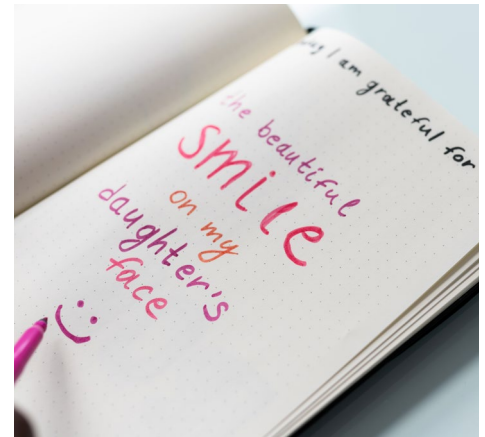 I am grateful for
the beautiful
smile
on my
daughter's
face